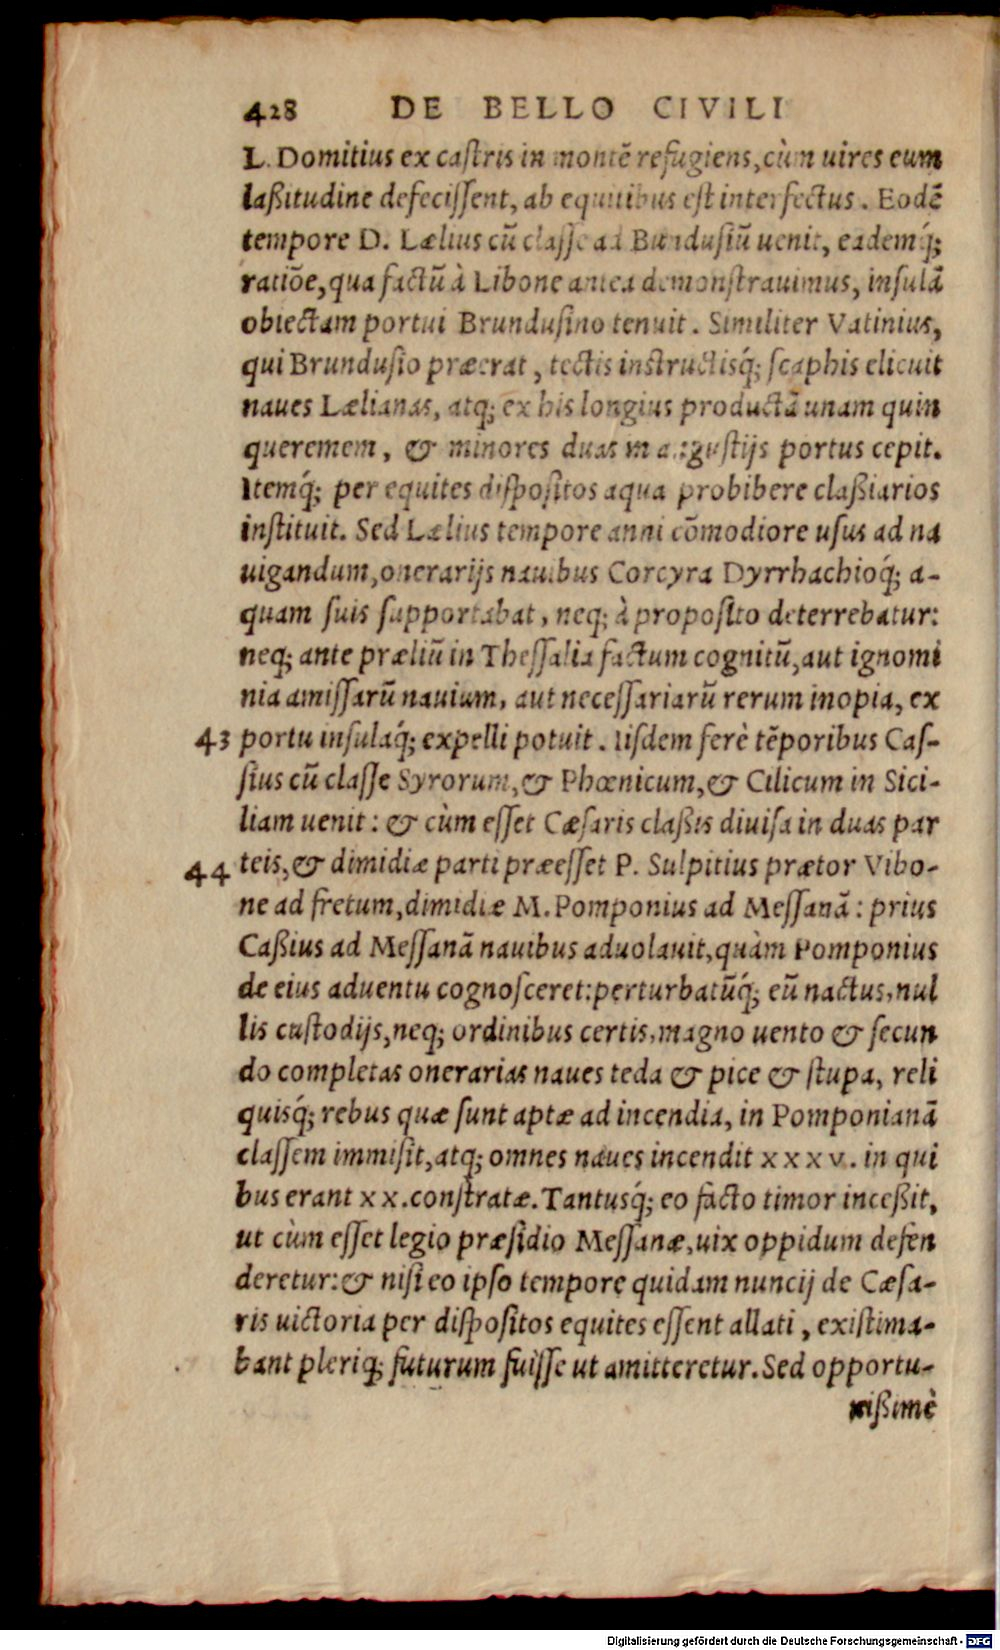 428 DE BELLO CIVILI
L. Domitius ex castris in montē refugiens, cùm uires eum
laßitudine defecissent, ab equitibus est interfectus. Eodē
tempore D. Lælius cū classe ad Brundusiū uenit, eademq́;
ratiōe, qua factū à Libone antea demonstrauimus, insulā
obiectam portui Brundusino tenuit. Similiter Vatinius,
qui Brundusio præerat, tectis instructisq́; scaphis elicuit
naues Lælianas, atq; ex his longius productā unam quin
queremem, & minores duas in angustijs portus cepit.
Itemq́; per equites dispositos aqua prohibere claßiarios
instituit. Sed Lælius tempore anni cōmodiore usus ad na
uigandum, onerarijs nauibus Corcyra Dyrrhachioq́; a-
quam suis supportabat, neq; à proposito deterrebatur:
neq; ante præliū in Thessalia factum cognitū, aut ignomi
nia amissarū nauium, aut necessariarū rerum inopia, ex
43 portu insulaq́; expelli potuit. Iisdem ferè tēporibus Cas-
sius cū classe Syrorum, & Phœnicum, & Cilicum in Sici-
liam uenit: & cùm esset Cæsaris claßis diuisa in duas par
44 teis, & dimidiæ parti præesset P. Sulpitius prætor Vibo-
ne ad fretum, dimidiæ M. Pomponius ad Messanā: prius
Caßius ad Messanā nauibus aduolauit, quàm Pomponius
de eius aduentu cognosceret: perturbatūq́; eū nactus, nul
lis custodijs, neq; ordinibus certis, magno uento & secun
do completas onerarias naues teda & pice & stupa, reli
quisq́; rebus quæ sunt aptæ ad incendia, in Pomponianā
classem immisit, atq; omnes naues incendit xxxv. in qui
bus erant xx. constratæ. Tantusq́; eo facto timor inceßit,
ut cùm esset legio præsidio Messanæ, uix oppidum defen
deretur: & nisi eo ipso tempore quidam nuncij de Cæsa-
ris uictoria per dispositos equites essent allati, existima-
bant pleriq; futurum fuisse ut amitteretur. Sed opportu-
nißimè
Digitalisierung gefördert durch die Deutsche Forschungsgemeinschaft - DFG